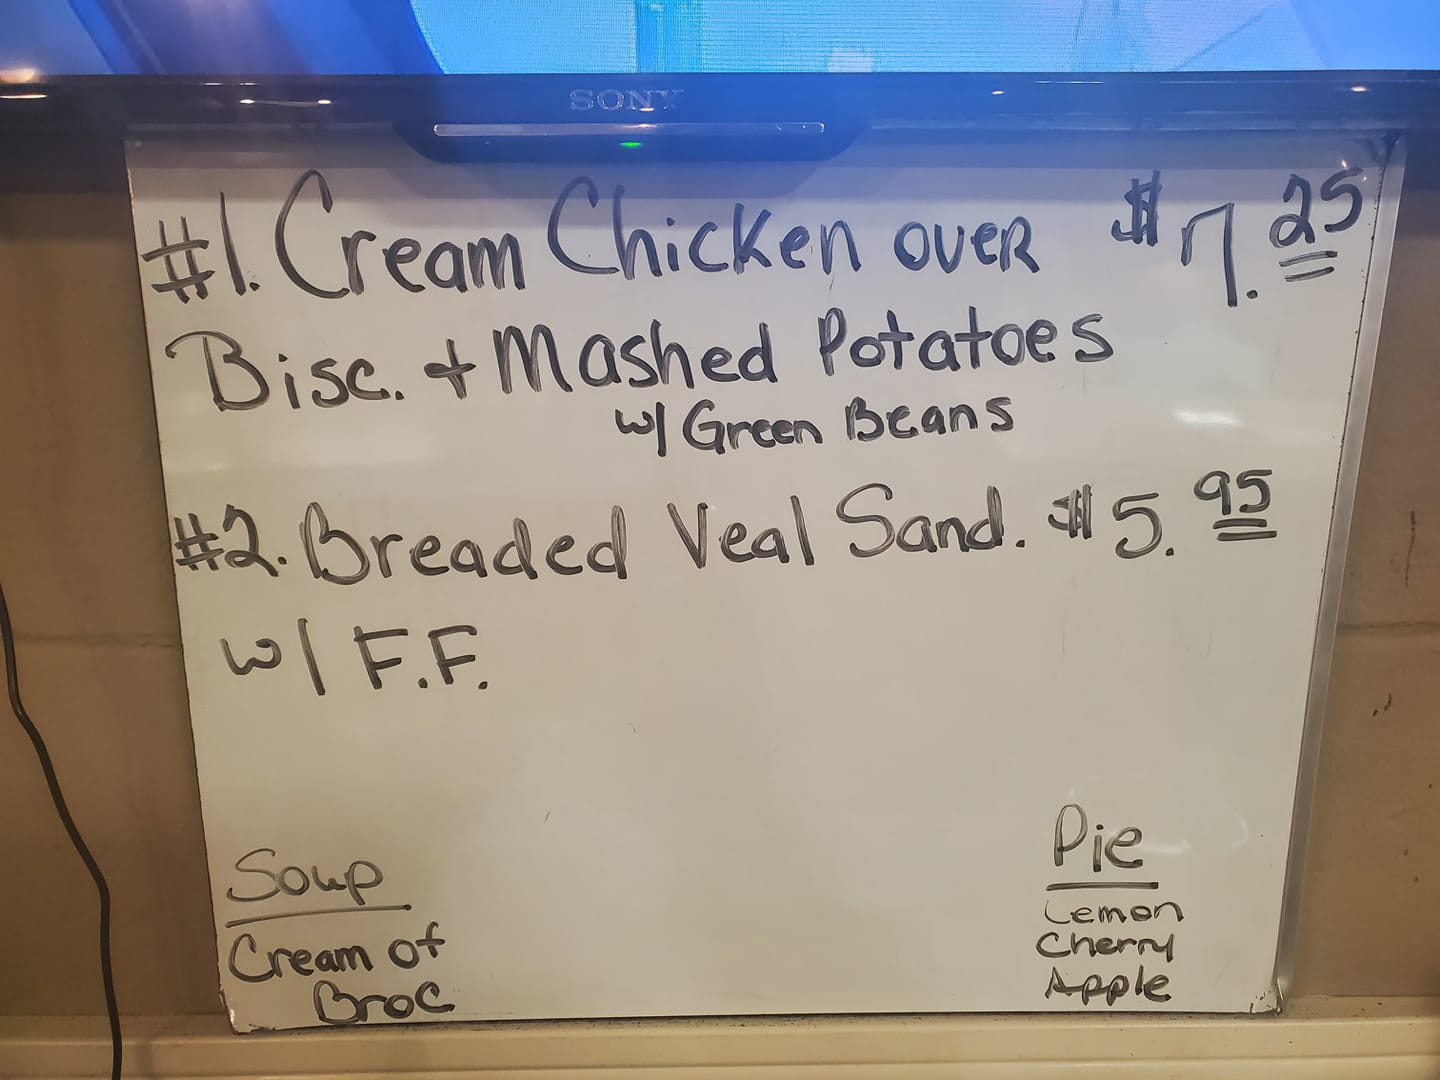 SONY
#1. Cream Chicken over $7.25
Bisc. + Mashed Potatoes
w/ Green Beans
#2. Breaded Veal Sand. $5.95
w/ F.F.
Soup
Cream of
Broc
Pie
Lemon
Cherry
Apple